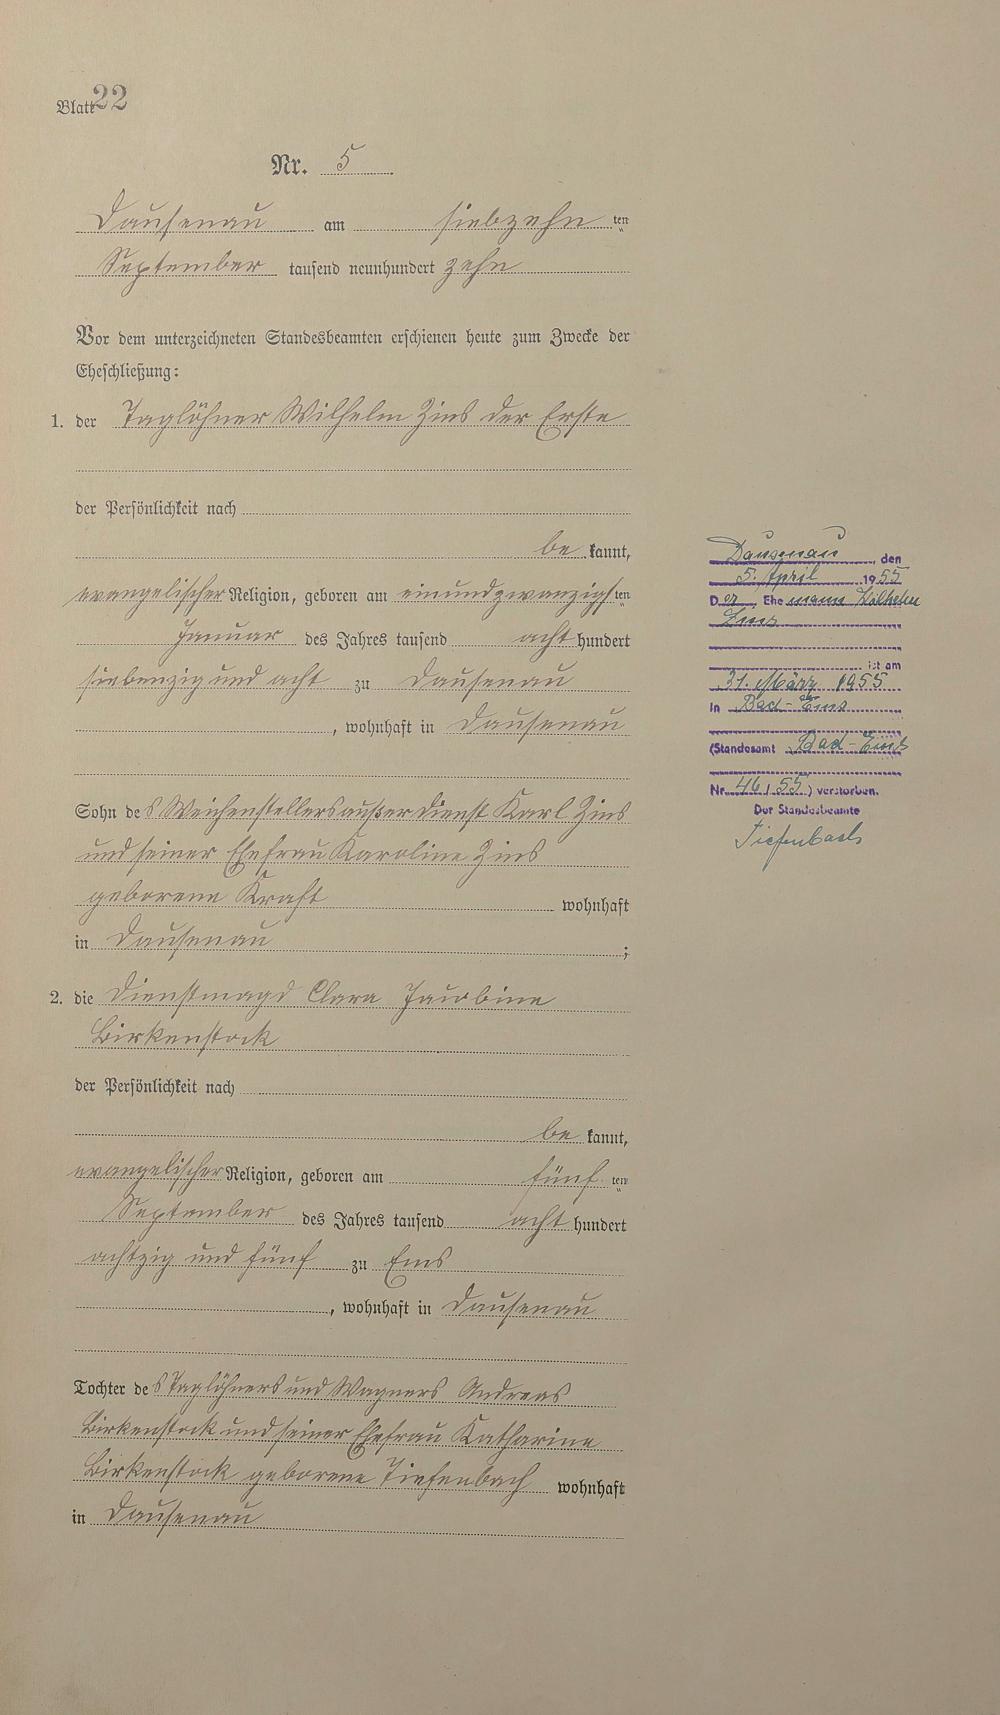 Blatt 22
Nr. 5
Dausenau am siebzehn ten
September tausend neunhundert zehn
Vor dem unterzeichneten Standesbeamten erschienen heute zum Zwecke der
Eheschließung:
1. der Taglöhner Wilhelm Zins der Erste
der Persönlichkeit nach
be kannt,
evangelischer Religion, geboren am einundzwanzigsten
Januar des Jahres tausend acht hundert
siebenzig und acht zu Dausenau
, wohnhaft in Dausenau
Sohn des Weichenstellers außer Dienst Karl Zins
und seiner Ehefrau Karoline Zins
geborene Kraft wohnhaft
in Dausenau ;
2. die Dienstmagd Clara Jacobine
Birkenstock
der Persönlichkeit nach
be kannt,
evangelischer Religion, geboren am fünf ten
September des Jahres tausend acht hundert
achtzig und fünf zu Ems
, wohnhaft in Dausenau
Tochter des Taglöhners und Wagners Andreas
Birkenstock und seiner Ehefrau Katharine
Birkenstock geborene Tiefenbach wohnhaft
in Dausenau
Dausenau, den
5. April 1955
Der Ehemann Wilhelm
Zins
ist am
31. März 1955
in Bad-Ems
(Standesamt Bad-Ems
Nr. 46/55) verstorben.
Der Standesbeamte
Tiefenbach